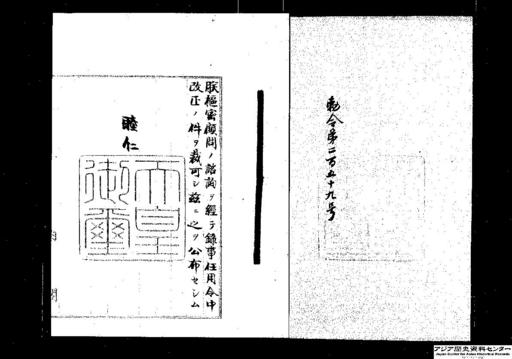 勅令第二百五十九号
朕樞密顧問ノ諮詢ヲ經テ錄事任用令中
改正ノ件ヲ裁可シ茲ニ之ヲ公布セシム
睦仁
天皇
御璽
内
閣
アジア歴史資料センター
Japan Center for Asian Historical Records